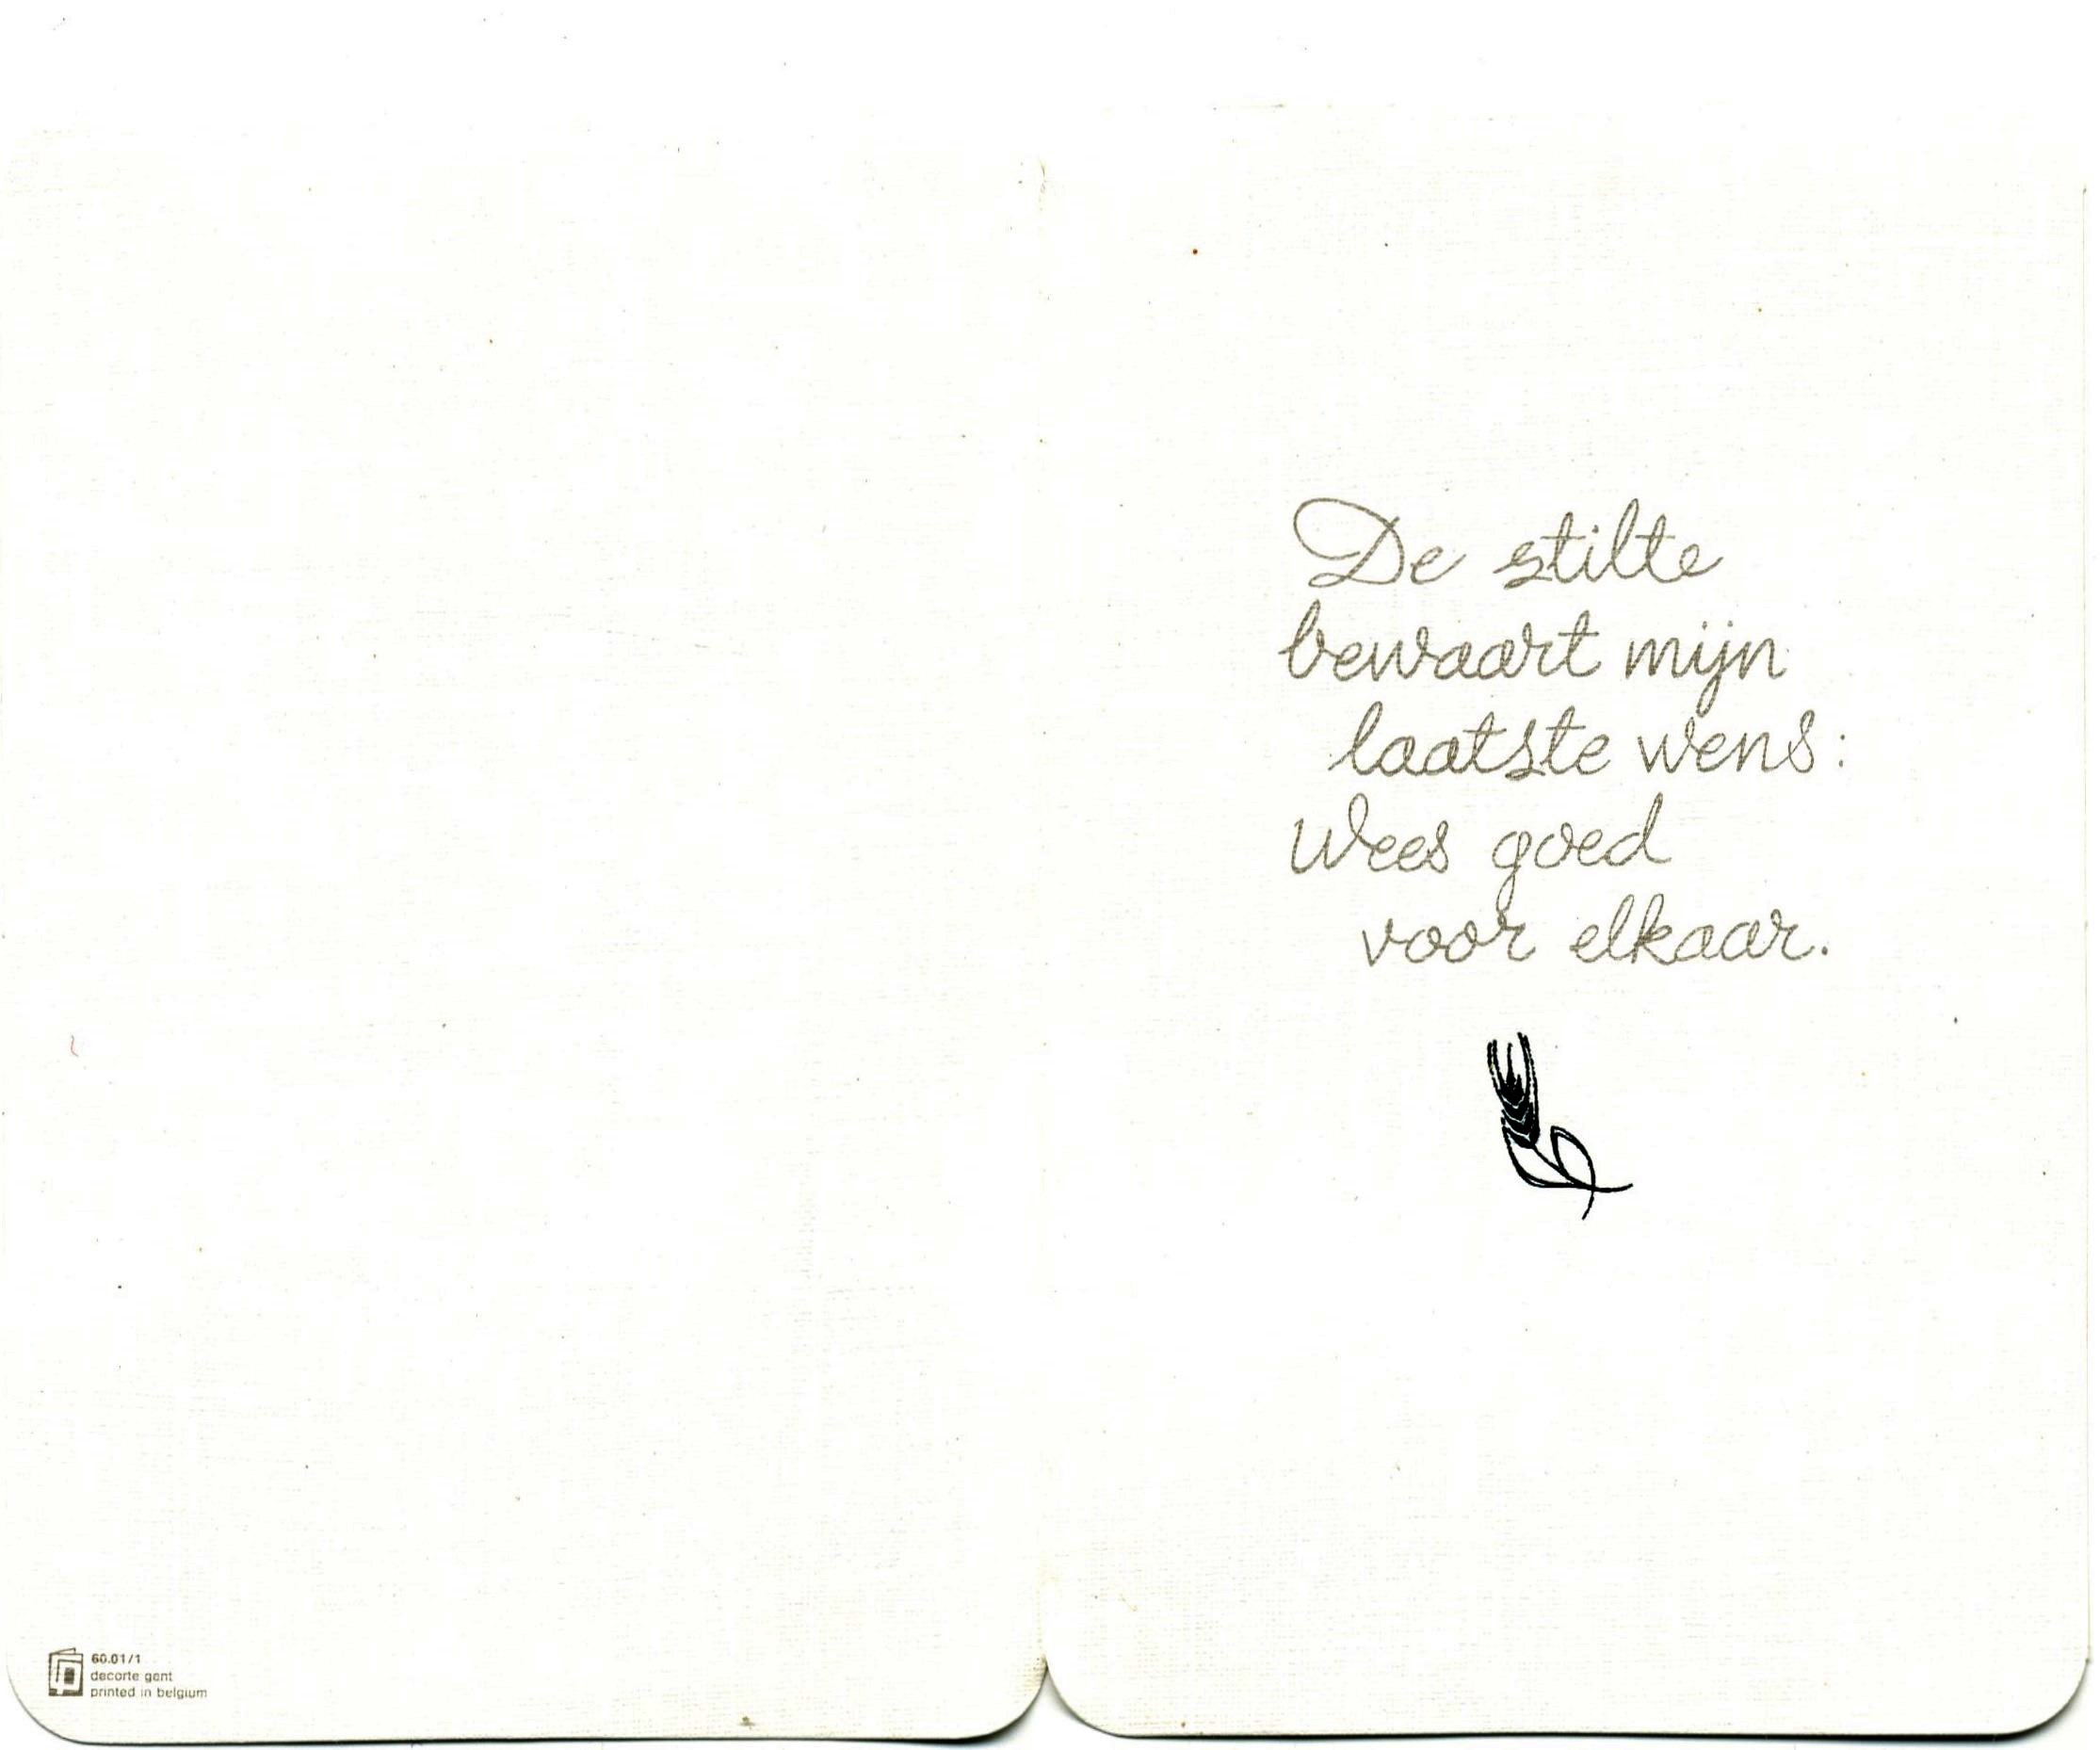 De stilte
bewaart mijn
laatste wens:
Wees goed
voor elkaar.
60.01/1
decorte gent
printed in belgium